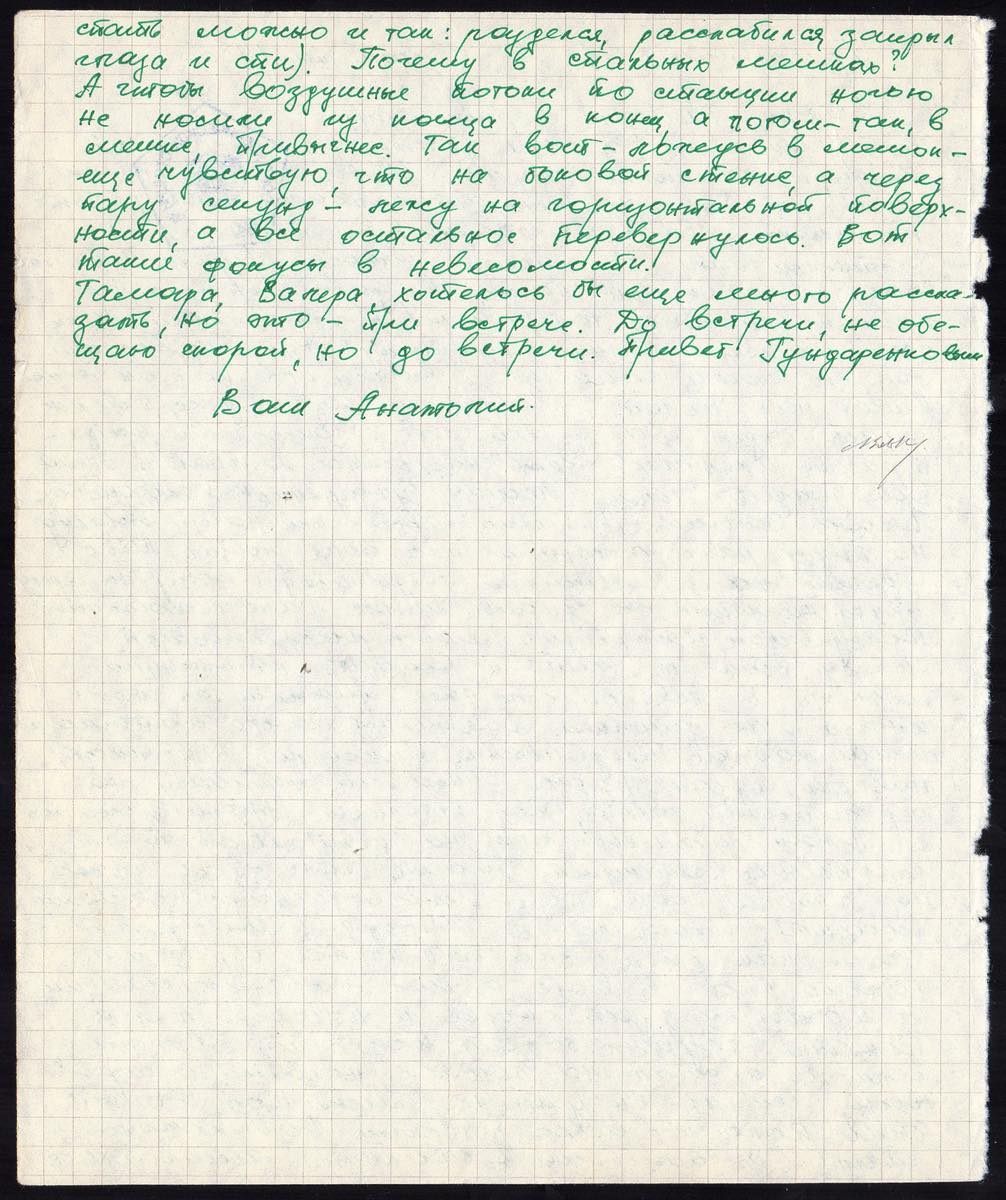 спать можно и так: разделся, расслабился, закрыл
глаза и спи). Почему в спальных мешках?
А чтобы воздушные потоки по станции ночью
не носили из конца в конец, а потом – так, в
мешке, привычнее. Так вот – ложусь в мешок –
еще чувствую, что на боковой стенке, а через
пару секунд – лежу на горизонтальной поверх-
ности, а все остальное перевернулось. Вот
такие фокусы в невесомости.
Тамара, Валера, хотелось бы еще много расска-
зать, но это – при встрече. До встречи, не обе-
щаю скорой, но до встречи. Привет Гундаренковым
Ваш Анатолий.